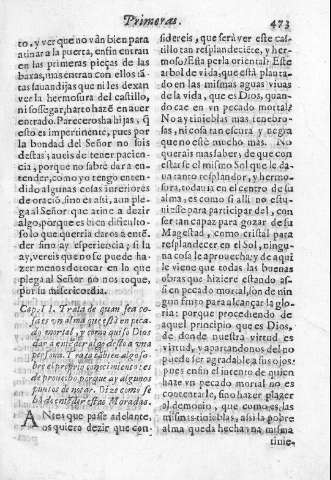 Primeras. 473
to, y ver que no vãn bien para
atinar a la puerta, enfin entran
en las primeras pieças de las
baxas, mas entran con ellos tã-
tas sauandijas que ni les dexan
ver la hermosura del castillo,
ni sossegar, harto hazẽ en auer
entrado. Pareceros ha hijas, q̃
esto es impertinente, pues por
la bondad del Señor no sois
destas; aueis de tener pacien-
cia, porque no sabrè dar a en-
tender, como yo tengo enten-
dido algunas cosas interiores
de oraciõ, sino es assi, aun ple-
ga al Señor que atine a dezir
algo, porque es bien dificulto-
so lo que querria daros a entẽ-
der sino ay esperiencia; si la
ay, vereis que no se puede ha-
zer menos de tocar en lo que
plega al Señor no nos toque,
por su misericordia.
Cap. II. Trata de quan fea co-
sa es vn alma que està en peca-
do mortal, y como quiso Dios
dar a entender algo desto a vna
persona. Trata tãbien algo so-
bre el proprio conocimiento: es
de prouecho, porque ay algunos
puntos de notar. Dize como se
hã de entẽder estas Moradas.
ANtes que passe adelante,
os quiero dezir que con-
sidereis, que serà ver este cas-
tillo tan resplandeciẽte, y her-
moso? Esta perla oriental? Este
arbol de vida, que està planta-
do en las mismas aguas viuas
de la vida, que es Dios, quan-
do cae en vn pecado mortal?
No ay tinieblas mas tenebro-
sas, ni cosa tan escura y negra
que no estè mucho mas. No
querais mas saber, de que con
estarse el mismo Sol que le da-
ua tanto resplandor, y hermo-
sura, todauia en el centro de su
alma, es como si alli no estu-
uiesse para participar del, con
ser tan capaz para gozar de su
Magestad, como cristal para
resplandecer en el Sol, ningu-
na cosa le aprouecha; y de aqui
le viene que todas las buenas
obras que hiziere estando assi
en pecado mortal, son de nin-
gun fruto para alcançar la glo-
ria: porque procediendo de
aquel principio que es Dios,
de donde nuestra virtud es
virtud, y apartandonos del no
puede ser agradable a sus ojos:
pues enfin el intento de quien
haze vn pecado mortal no es
contentarle, sino hazer plazer
al demonio, que como es las
mismas tinieblas, assi la pobre
alma queda hecha vna misma
tinie-